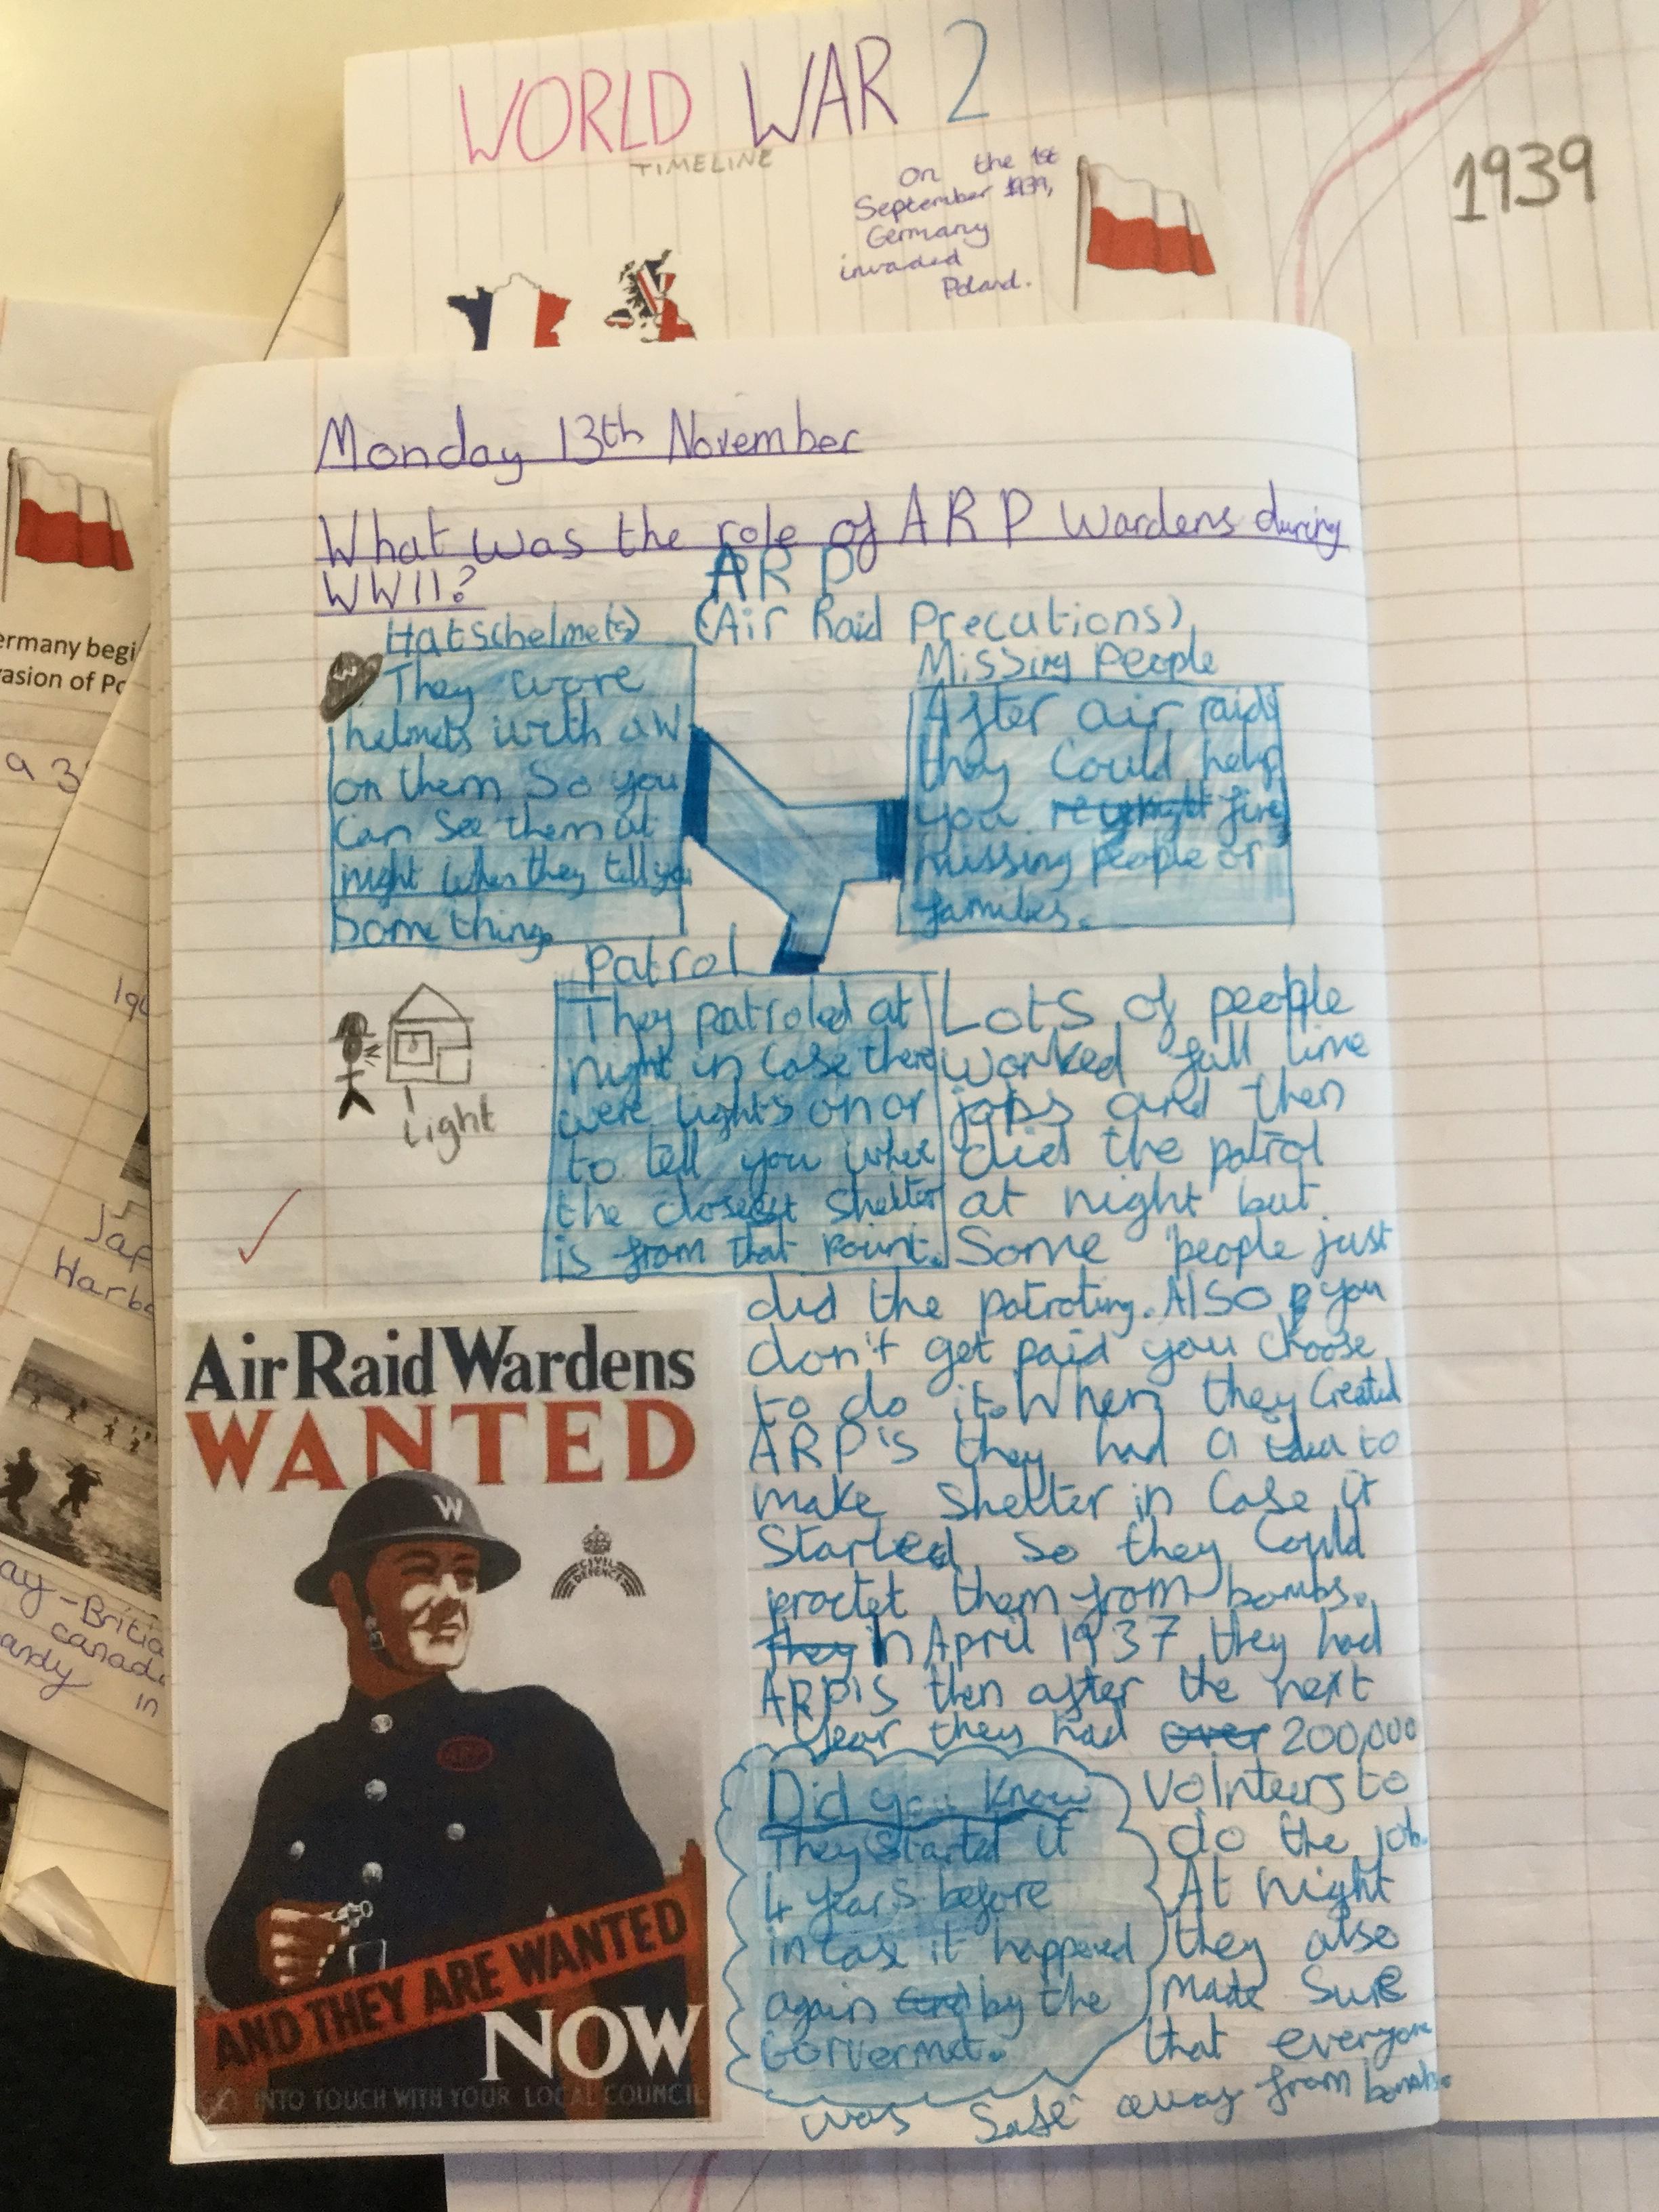 WORLD WAR 2
TIMELINE
On the 1st
September 1939,
Germany
invaded
Poland.
1939
ermany begi
asion of Po
a 3
19
Jap
Harbo
ay - Britia
canad
andy in
Monday 13th November
What was the role of ARP Wardens during
WWII?
ARP
(Air Raid Precutions)
Hats(helmets)
W
They wore
helmets with a W
on them So you
Can See them at
night when they tell you
Something.
Missing People
After air raids
they Could help
you find
missing people or
families.
Patrol
They patroled at
night in Case there
were lights on or
to tell you where
the closest Shelter
is from that Point.
Light
Lots of people
worked full time
jobs and then
died the patrol
at night but
Some people just
did the patroting. Also you
don't get paid you choose
to do it. When they Created
ARP's they had a to
make Shelter in Case it
Started So they Could
proctet them from bombs.
they In April 1937 they had
ARP'S then after the next
Year they had over 200,000
Volnteers to
do the job.
At night
they also
made Sure
that everyone
was Safe away from bombs.
Did you Know
They Started it
4 years before
in Case it happened
again by the
Gorvermet.
Air Raid Wardens
WANTED
W
CIVIL
DEFENCE
ARP
AND THEY ARE WANTED
NOW
INTO TOUCH WITH YOUR LOCAL COUNCIL